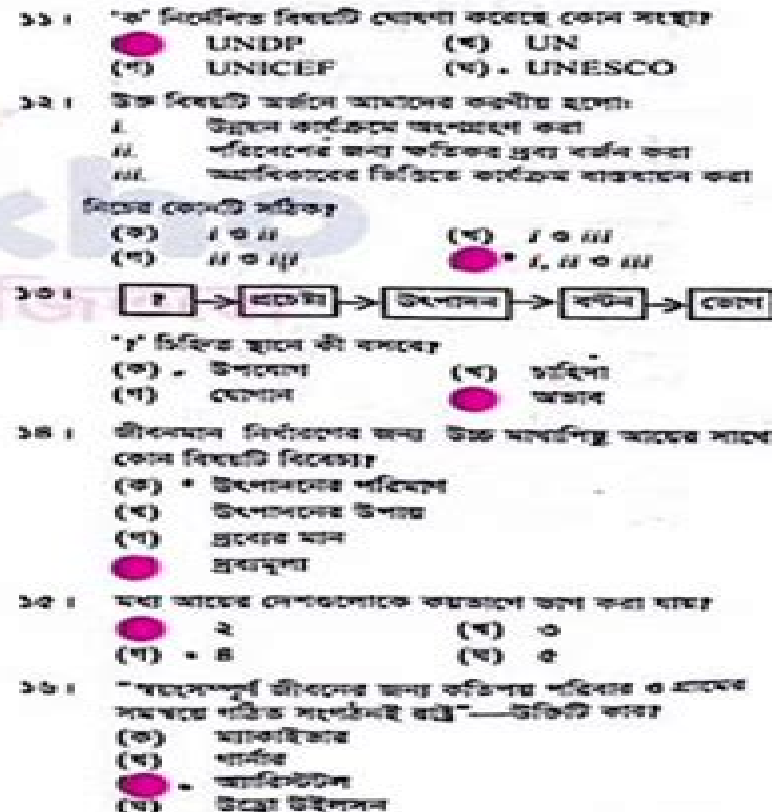 ১১। "ক" নির্দেশিত বিষয়টি ঘোষণা করেছে কোন সংস্থা?
UNDP (খ) UN
(গ) UNICEF (ঘ) UNESCO
১২। উক্ত বিষয়টি অর্জনে আমাদের করণীয় হলো:
i. উন্নয়ন কার্যক্রমে অংশগ্রহণ করা
ii. পরিবেশের জন্য ক্ষতিকর দ্রব্য বর্জন করা
iii. অগ্রাধিকারের ভিত্তিতে কার্যক্রম বাস্তবায়ন করা
নিচের কোনটি সঠিক?
(ক) i ও ii (খ) i ও iii
(গ) ii ও iii i, ii ও iii
১৩। ? প্রচেষ্টা উৎপাদন বণ্টন ভোগ
"?" চিহ্নিত স্থানে কী বসবে?
(ক) উপযোগ (খ) চাহিদা
(গ) যোগান অভাব
১৪। জীবনমান নির্ধারণের জন্য উক্ত মাথাপিছু আয়ের সাথে
কোন বিষয়টি বিবেচ্য?
(ক) উৎপাদনের পরিমাণ
(খ) উৎপাদনের উপায়
(গ) দ্রব্যের মান
দ্রব্যমূল্য
১৫। মধ্য আয়ের দেশগুলোকে কয়ভাগে ভাগ করা যায়?
২ (খ) ৩
(গ) ৪ (ঘ) ৫
১৬। "স্বয়ংসম্পূর্ণ জীবনের জন্য কতিপয় পরিবার ও গ্রামের
সমন্বয়ে গঠিত সংগঠনই রাষ্ট্র"—উক্তিটি কার?
(ক) ম্যাকাইভার
(খ) গার্নার
অ্যারিস্টটল
(ঘ) উড্রো উইলসন